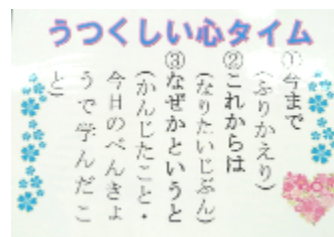 うつくしい心タイム
①今まで
(ふりかえり)
②これからは
(なりたいじぶん)
③なぜかというと
(かんじたこと・
今日のべんきょ
うで学んだこ
と)